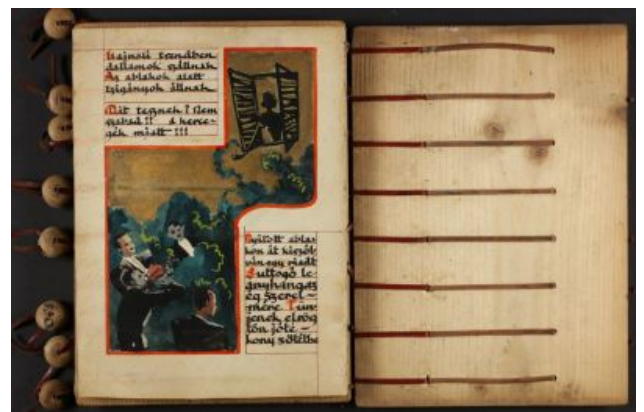 Hajnali trendben
dallamok szállnak
Az ablakok alatt
czigányok állnak
Mit tesznek? Nem
szabad!! A herce-
gék miatt!!!
Nyitott ablak
kon át kiszól
vin egy riadt
Suttogó le-
ányhang az
ég szerel-
mére Tün-
jenek el rög
tön jóté-
kony sötétbe